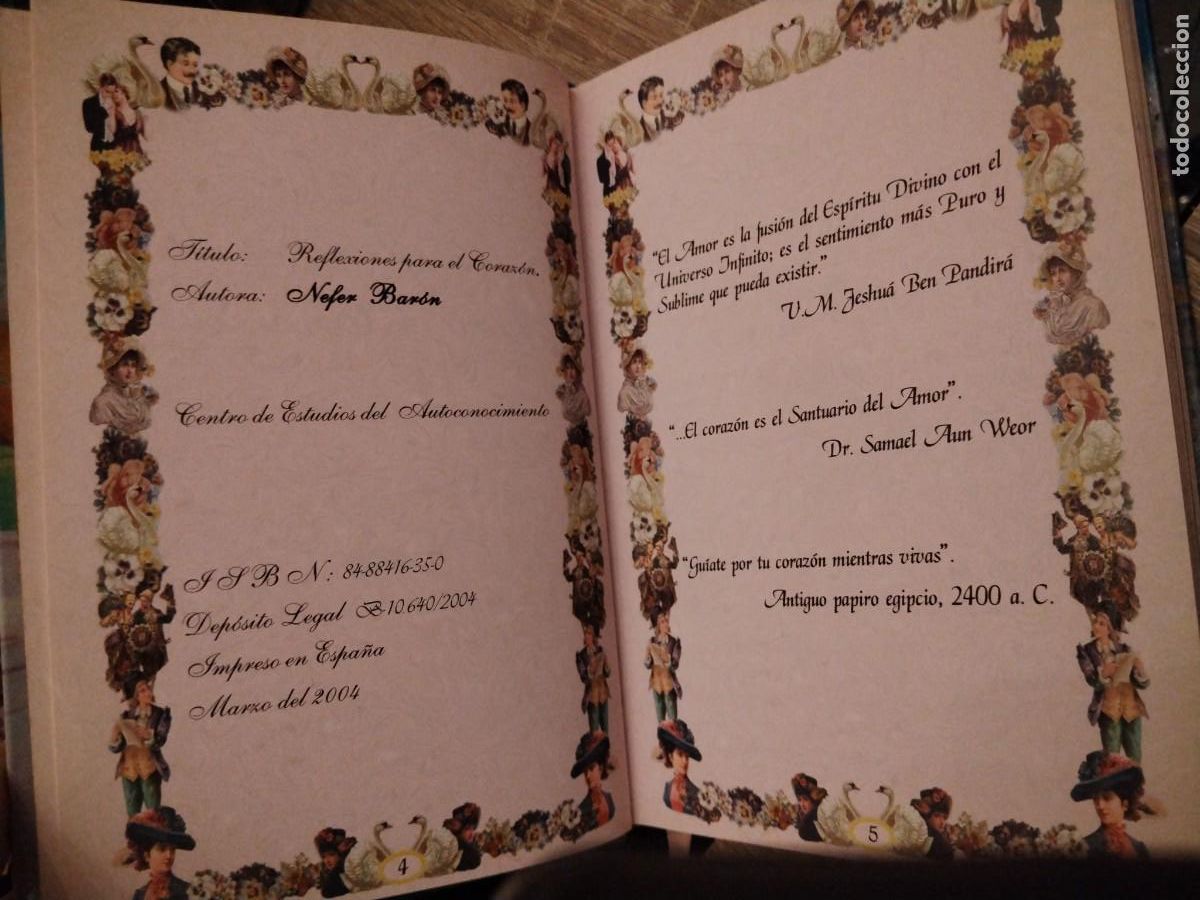 Título: Reflexiones para el Corazón.
Autora: Nefer Barón
Centro de Estudios del Autoconocimiento
I S B N: 84-88416-35-0
Depósito Legal B-10.640/2004
Impreso en España
Marzo del 2004
4
"El Amor es la fusión del Espíritu Divino con el
Universo Infinito; es el sentimiento más Puro y
Sublime que pueda existir."
V.M. Jeshuá Ben Pandirá
"...El corazón es el Santuario del Amor".
Dr. Samael Aun Weor
"Guíate por tu corazón mientras vivas".
Antiguo papiro egipcio, 2400 a. C.
5
todocoleccion